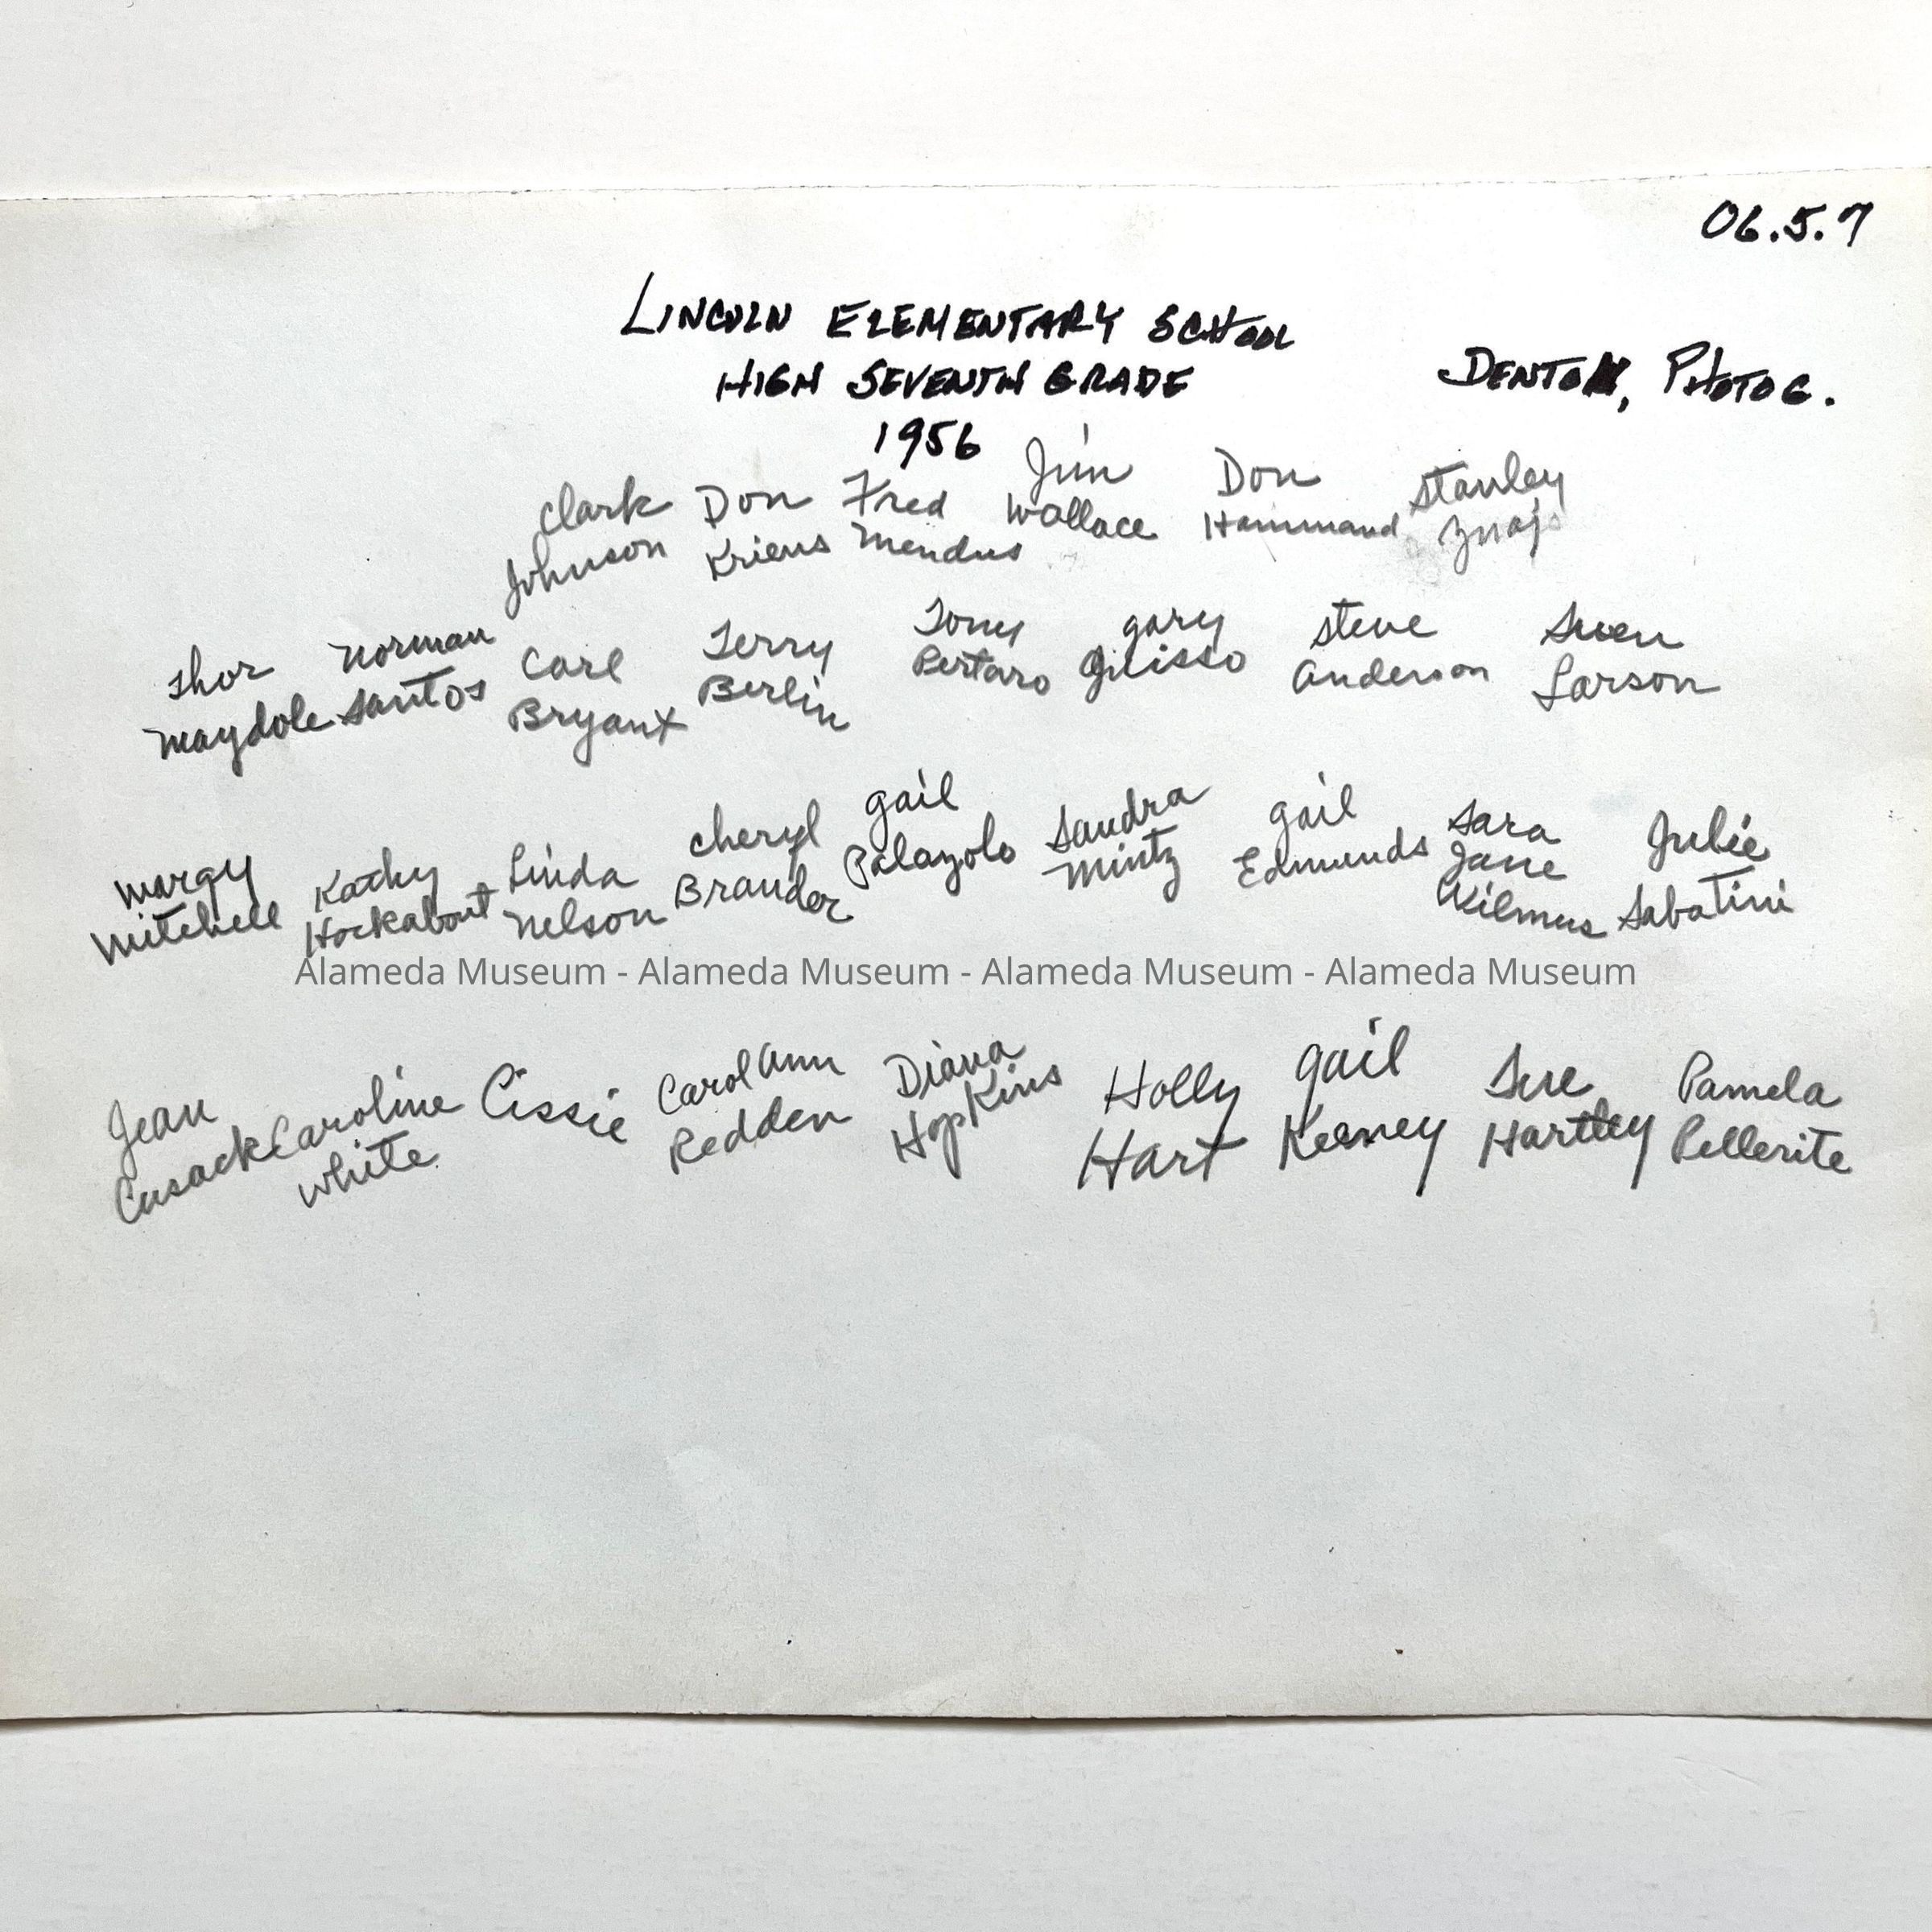 06.5.7
LINCOLN ELEMENTARY SCHOOL
HIGH SEVENTH GRADE
DENTON, PHOTOG.
1956
Clark Don Fred Jim Don Stanley
Johnson Kriens Mendus Wallace Hammand
Thor Norman Carl Terry Tony Gary Steve Swen
Maydole Santos Bryant Berlin Pertaro Grisso Anderson Larson
Margy Kathy Linda Cheryl Gail Sandra Gail Sara Julie
Jane
Mitchell Hockabout Nelson Brander Palazolo Mintz Edmunds Wilmus Sabatini
Alameda Museum - Alameda Museum - Alameda Museum - Alameda Museum
Jean Caroline Cissie Carol Ann Diana Holly Gail Sue Pamela
Cusack White Redden Hopkins Hart Keeney Hartley Pellerite